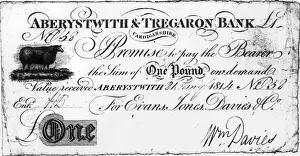 ABERYSTWITH & TREGARON BANK £1
CARDIGANSHIRE
No 50
Promise to pay the Bearer
the Sum of One Pound on demand
Value received ABERYSTWITH 21 1814 No 50
For Evans, Jones, Davies & Co.
Entd
£ One
Wm Davies